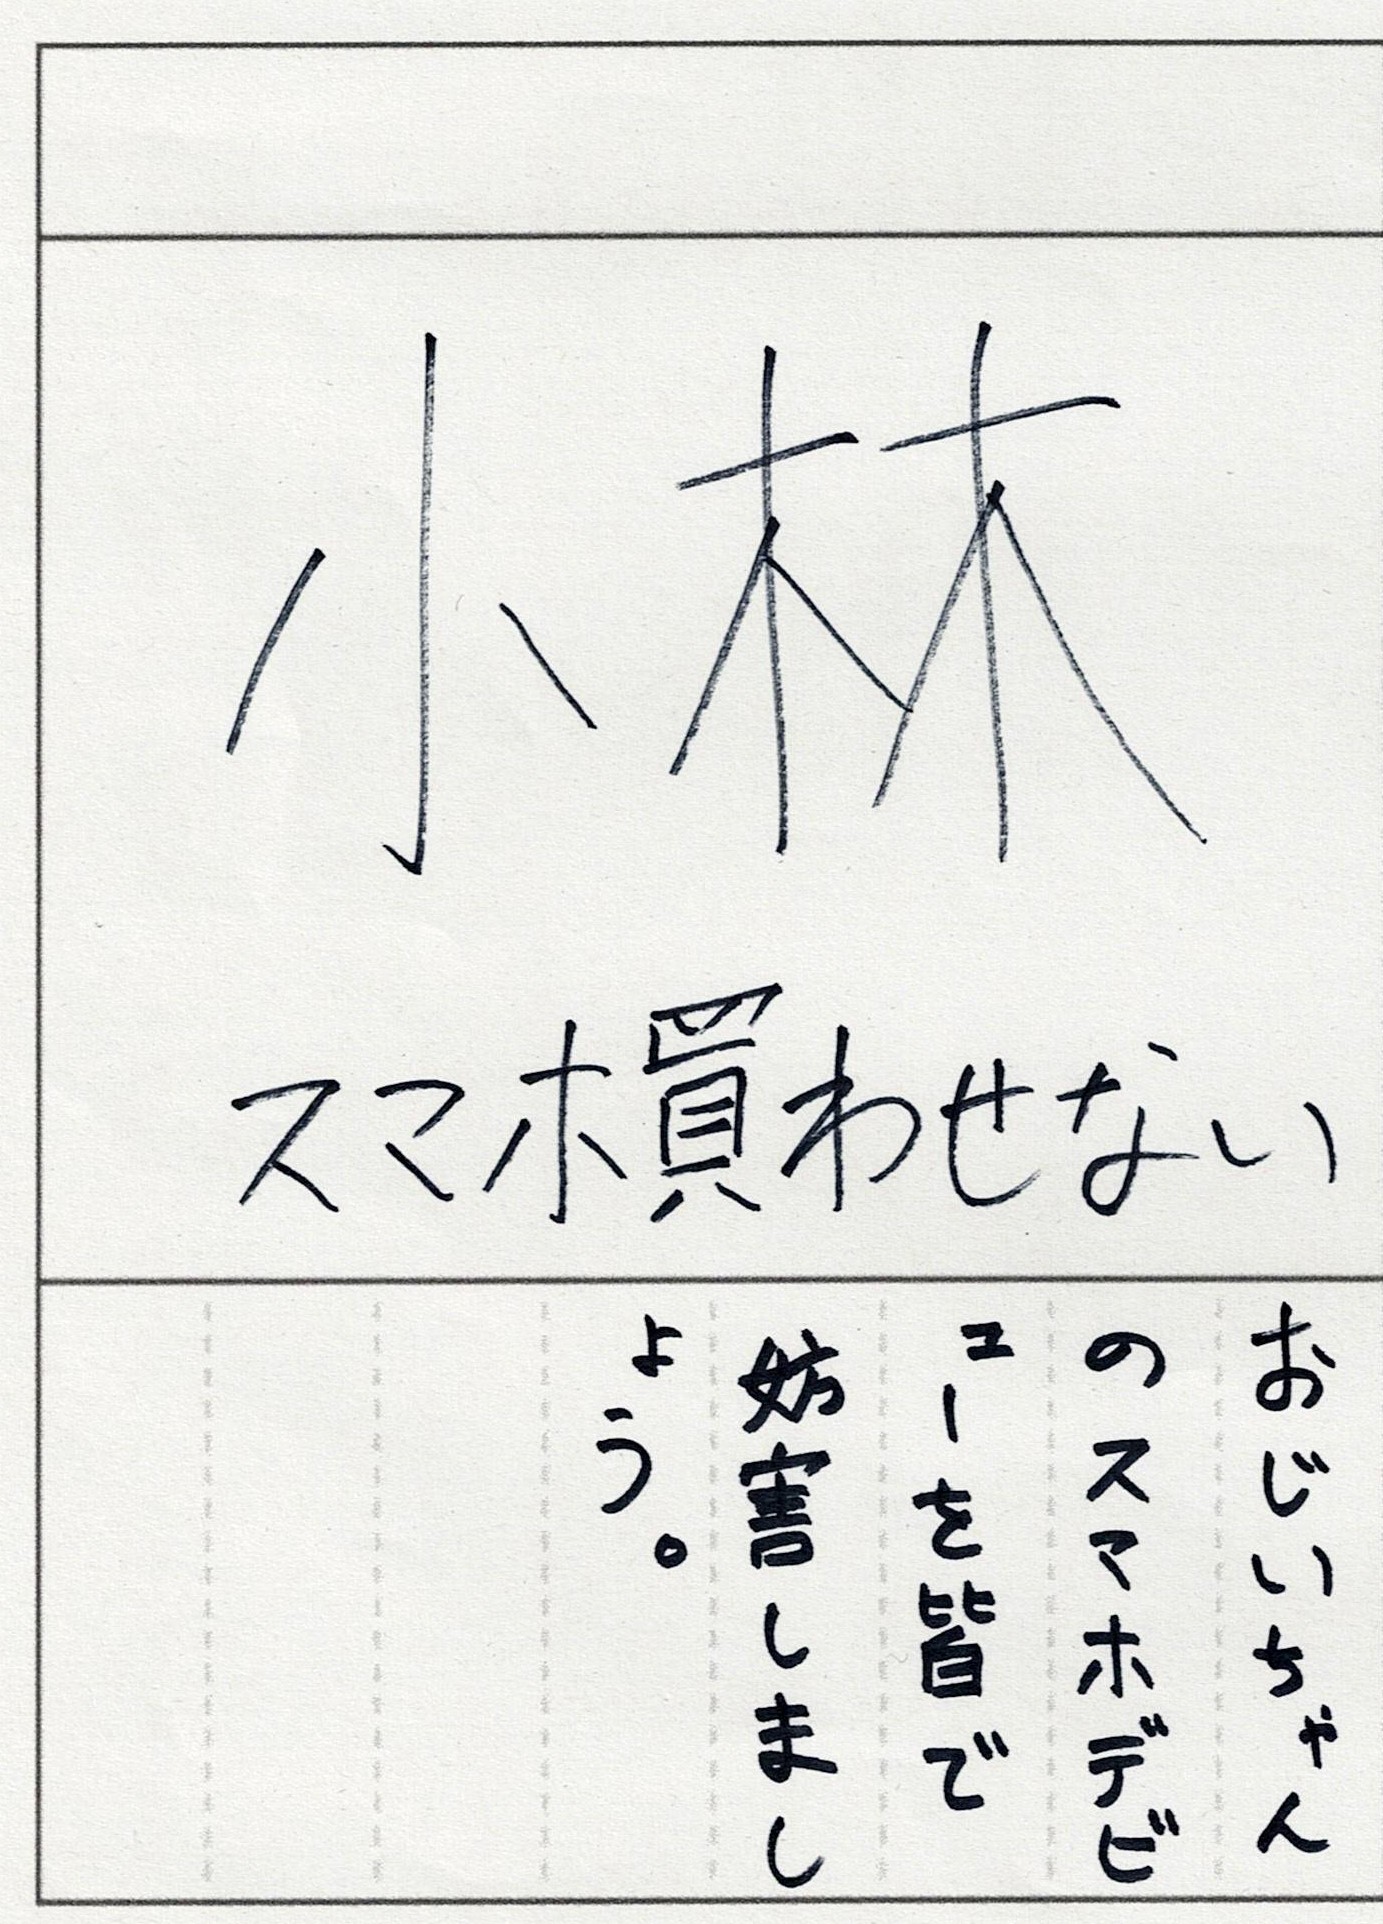 小林
スマホ買わせない
おじいちゃん
のスマホデビ
ューを皆で
妨害しまし
ょう。